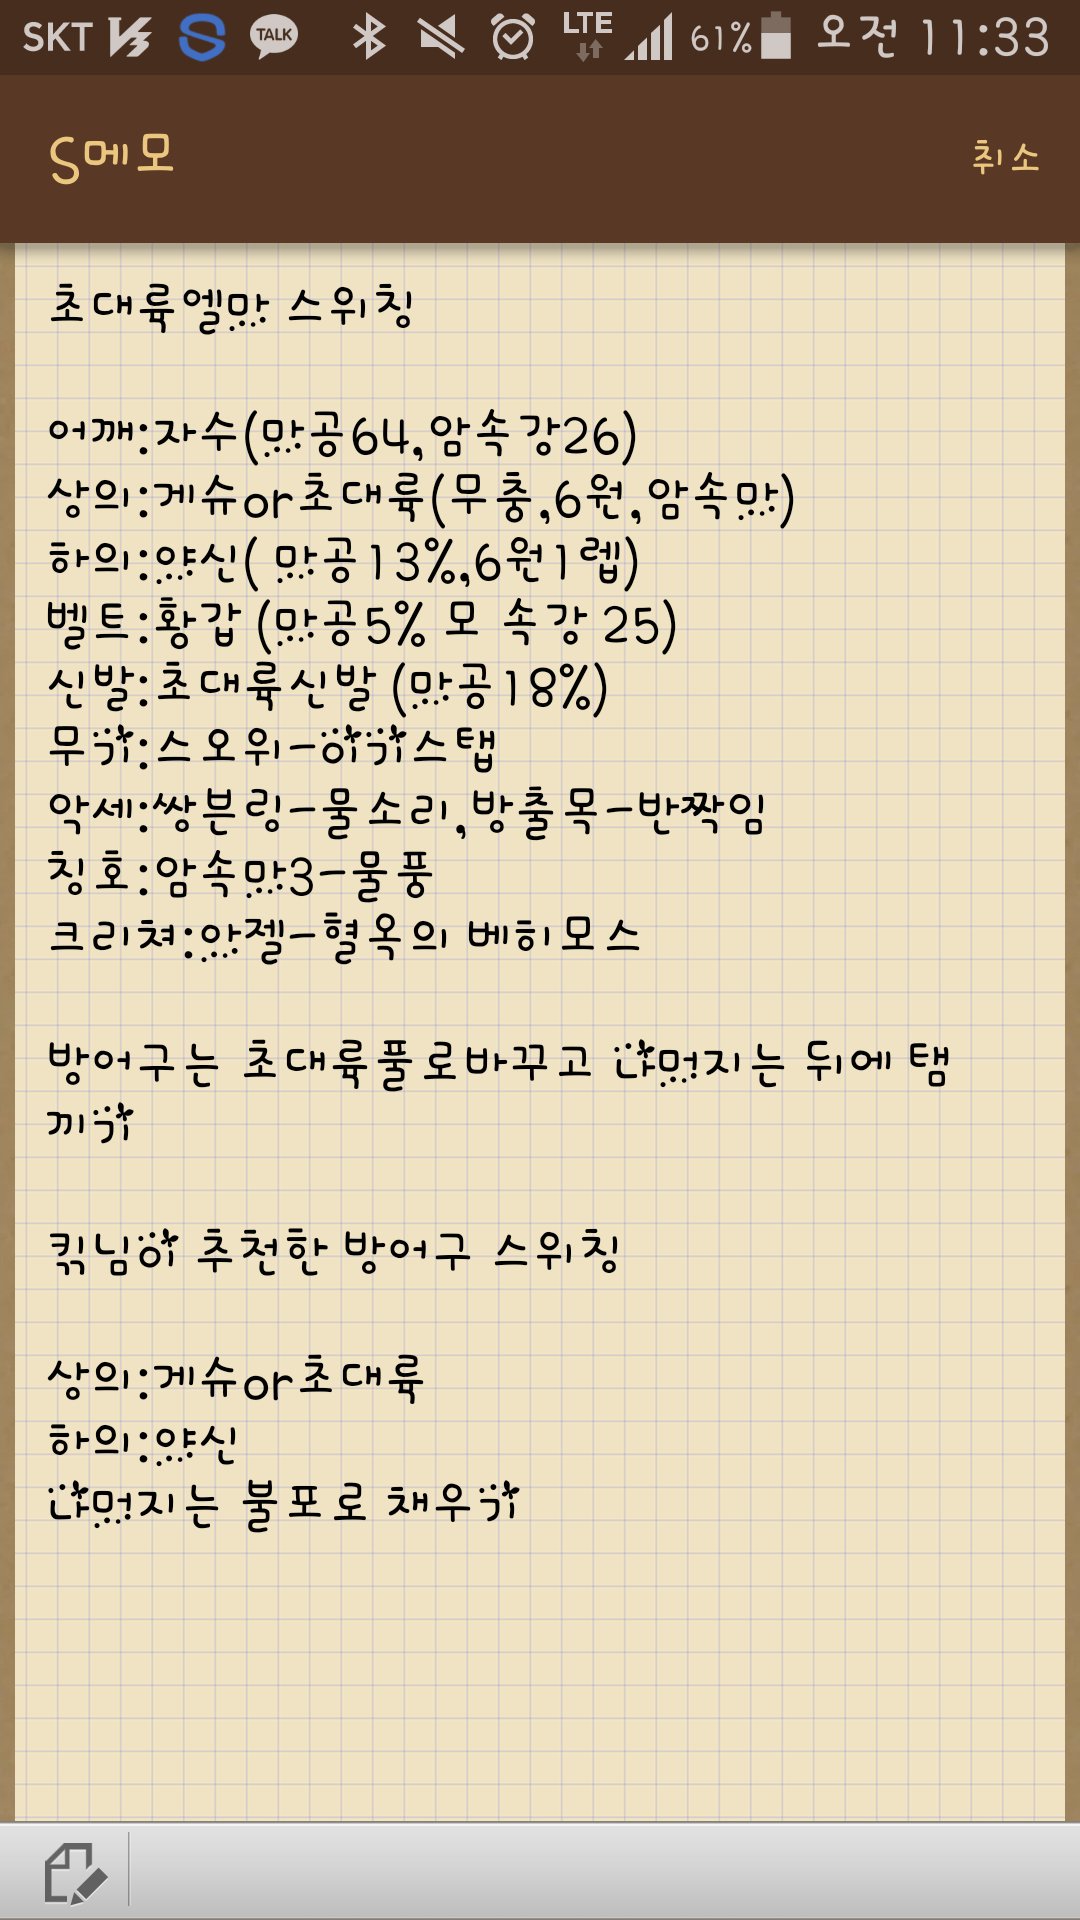 SKT TALK LTE 61% 오전 11:33
S메모 취소
초대륙엘마 스위칭
어깨:자수(마공64,암속강26)
상의:게슈or초대륙(무충,6원,암속마)
하의:양신( 마공13%,6원1렙)
벨트:황갑 (마공5% 모 속강 25)
신발:초대륙신발 (마공18%)
무기:스오위-이기스탭
악세:쌍븐링-물소리,방출목-반짝임
칭호:암속마3-물풍
크리쳐:아젤-혈옥의 베히모스
방어구는 초대륙풀로바꾸고 나머지는 뒤에 탬
끼기
킭님이 추천한 방어구 스위칭
상의:게슈or초대륙
하의:양신
나머지는 불포로 채우기